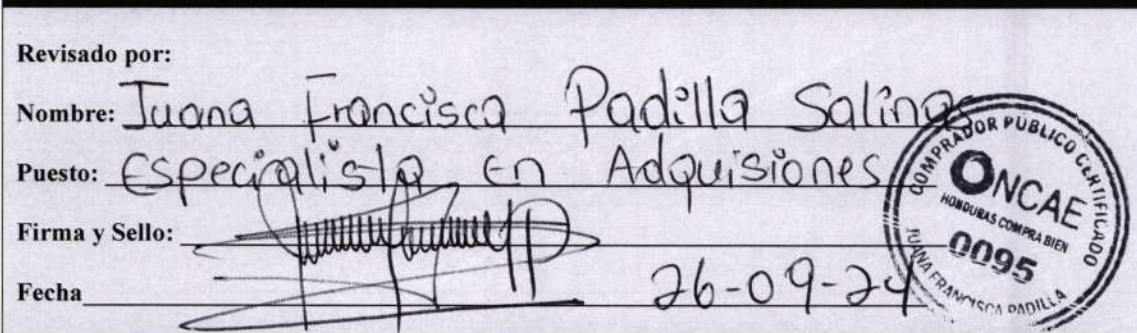 Revisado por:
Nombre: Juana Francisca Padilla Salinas
Puesto: Especialista En Adquisiones
Firma y Sello:
Fecha 26-09-24
COMPRADOR PUBLICO CERTIFICADO
ONCAE
HONDURAS COMPRA BIEN
0095
JUANA FRANCISCA PADILLA